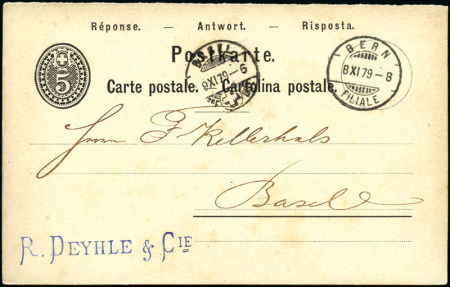 Réponse. — Antwort. — Risposta.
Postkarte.
Carte postale. Cartolina postale.
5
BASEL
9 XI 79 – 6
BERN
8 XI 79 – 8
FILIALE
Herrn F Kellerhals
Basel
R. DEYHLE & CIE